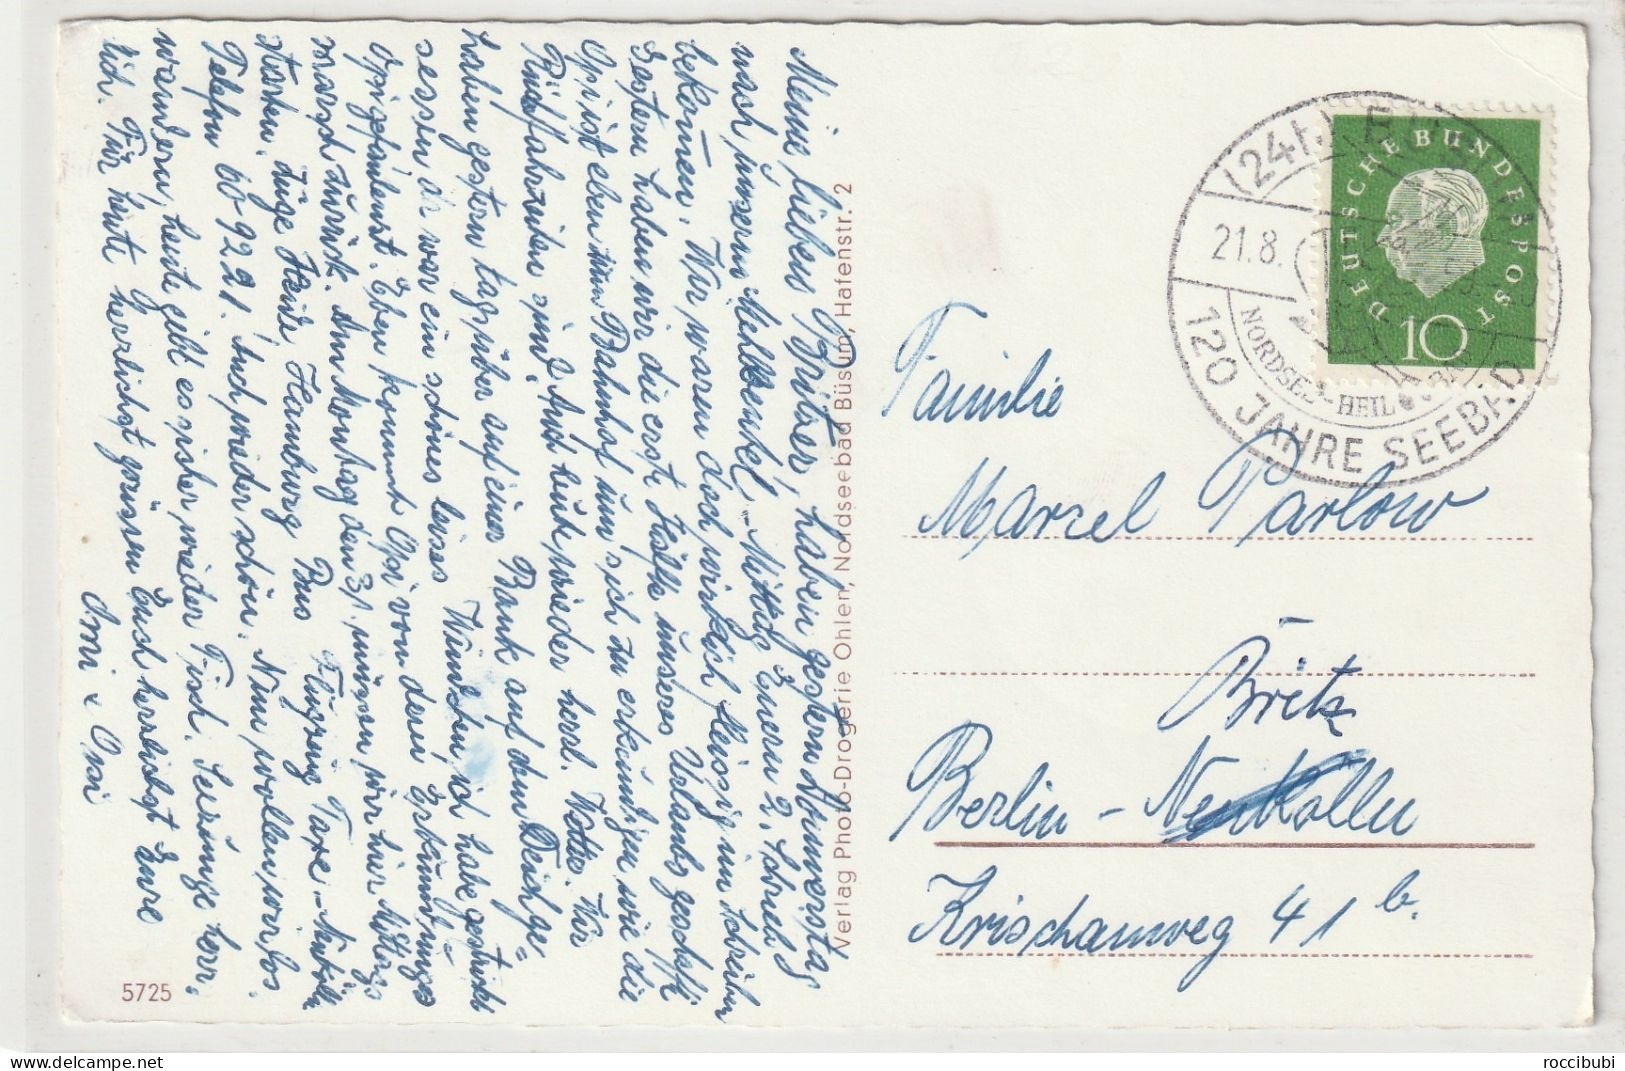 Meine lieben Britzer, haben gestern Donnerstag
nach unserm Mehlbeutel - Mittag Euern 2. Schrieb
bekommen. Wir waren doch wirklich fleissig im Schreiben
Gestern haben wir die erste Hälfte unseres Urlaubs geschafft
Opi ist eben zum Bahnhof um sich zu erkundigen wie die
Rückfahrzeiten sind. Auch heute wieder herrl. Wetter. Wir
haben gestern tagsüber auf einer Bank auf dem Deich ge=
sessen da war ein schönes leises Windchen, ich habe gestrickt
Opi gefaulenzt. Eben kommt Opi von den Erkundigungen
zurück. Am Montag den 31. müssen wir hier Mittags
starten. Züge Heide Hamburg Bus Flugzeug Taxe - Neukölln
Telefon 60-9221. Auch wieder schön. Nun wollen wir los
wandern, heute gibt es sicher wieder Fisch. Seezunge herr-
lich. Für heute herzlichst grüssen Euch herzlichst Eure
Omi & Opi
Verlag Photo-Drogerie Ohlen, Nordseebad Büsum, Hafenstr. 2
5725
(24b)
21.8.
NORDSEE-HEIL
120 JAHRE SEEBAD
DEUTSCHE BUNDESPOST
10
Familie
Marcel Parlow
Britz
Berlin - Neukölln
Krischanweg 41 b.
roccibubi